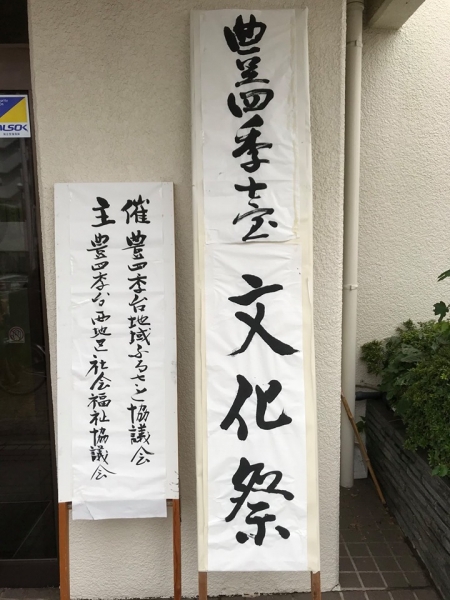 豊四季臺 文化祭
主催
豊四季台地域ふるさと協議会
豊四季台西地区社会福祉協議会
ALSOK